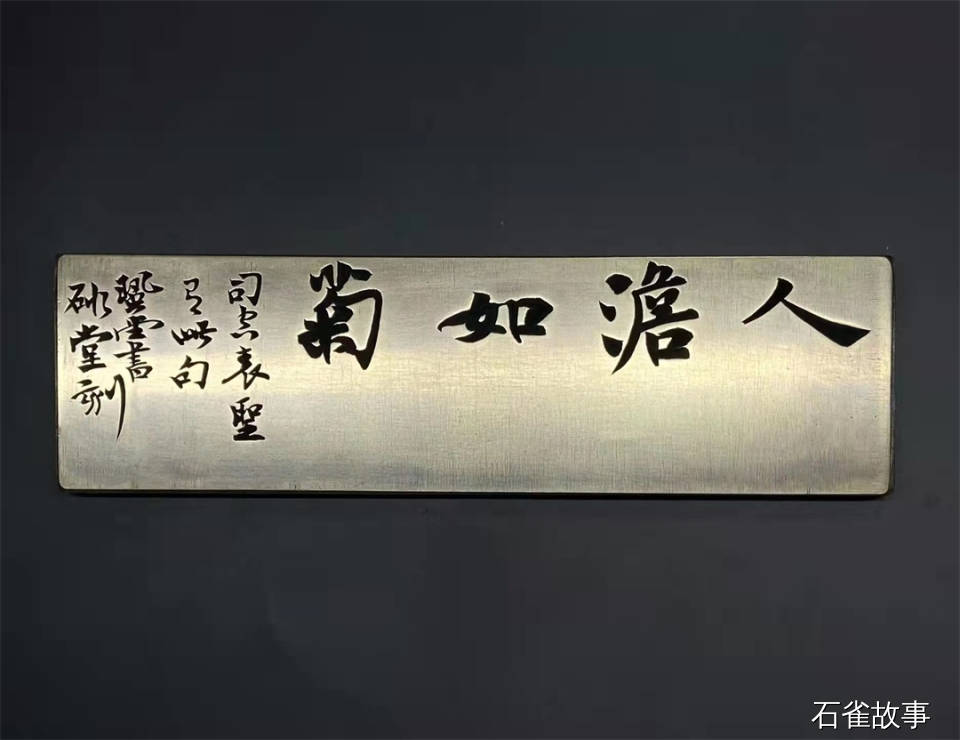 人澹如菊
司空表聖
有此句
堂書
硯堂刻
石雀故事